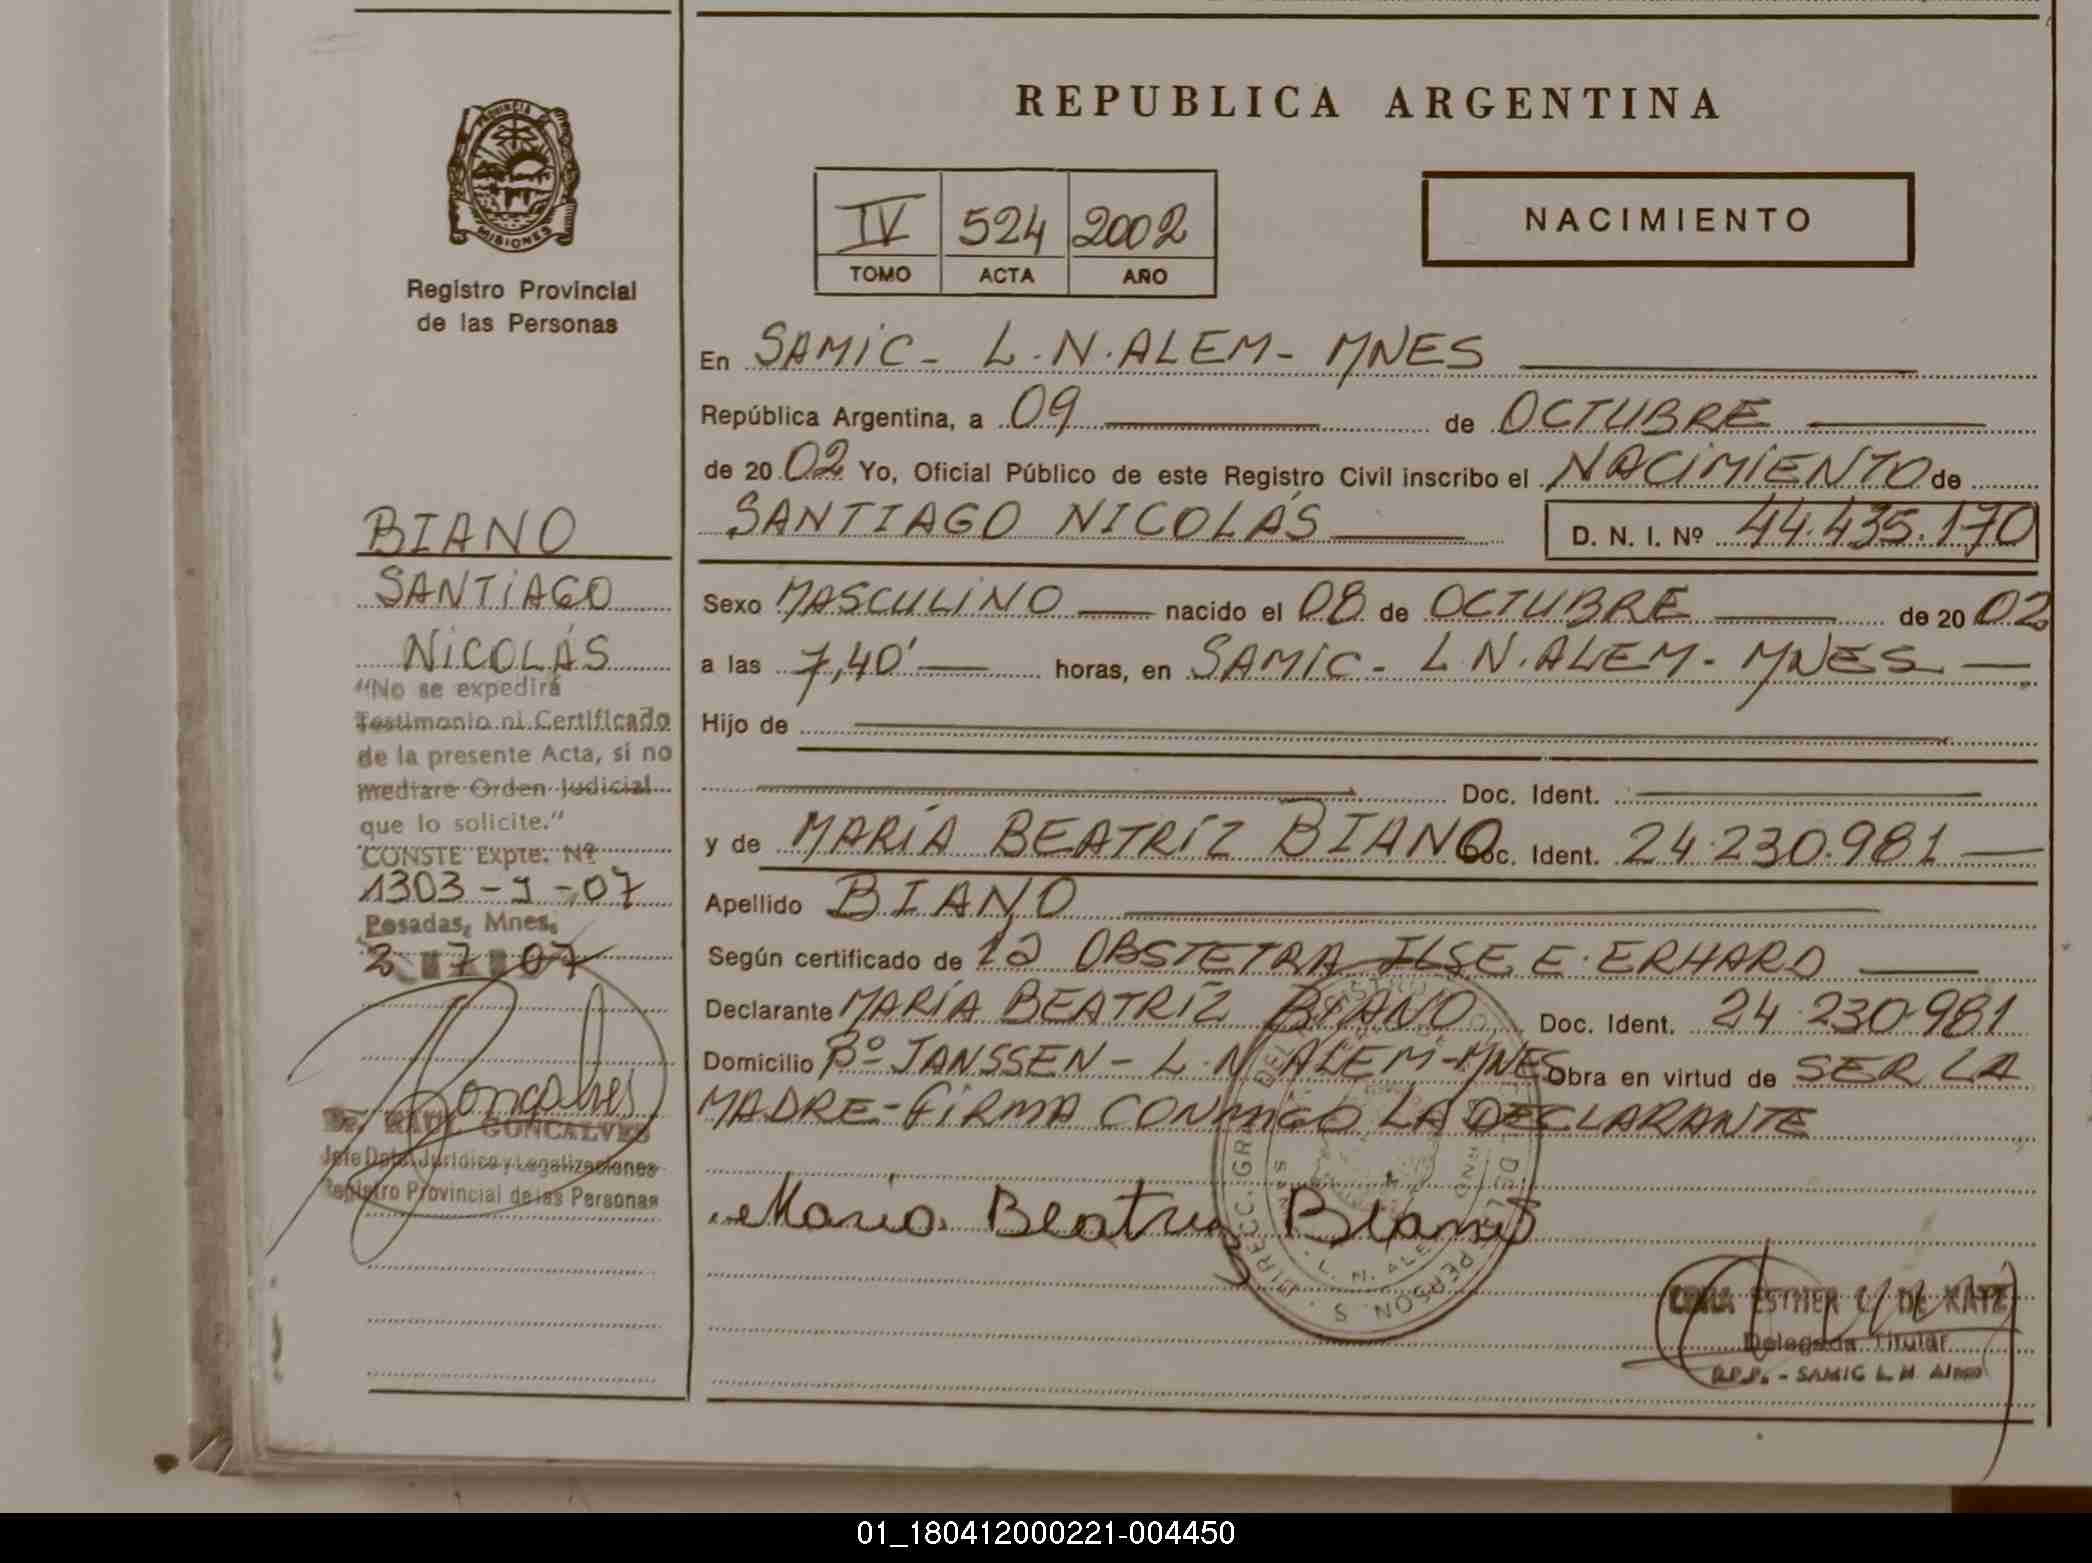 REPUBLICA ARGENTINA
PROVINCIA DE
MISIONES
Registro Provincial
de las Personas
IV 524 2002
TOMO ACTA AÑO
NACIMIENTO
En SAMIC - L.N.ALEM - MNES
República Argentina, a 09 de OCTUBRE
de 20 02 Yo, Oficial Público de este Registro Civil inscribo el NACIMIENTO de
SANTIAGO NICOLÁS D. N. I. Nº 44.435.170
Sexo MASCULINO nacido el 08 de OCTUBRE de 20 02
a las 7,40' horas, en SAMIC - L.N.ALEM - MNES
Hijo de
Doc. Ident.
y de MARÍA BEATRÍZ BIANO Doc. Ident. 24.230.981
Apellido BIANO
Según certificado de la OBSTETRA ILSE E. ERHARD
Declarante MARÍA BEATRÍZ BIANO Doc. Ident. 24.230.981
Domicilio Bº JANSSEN - L.N.ALEM - MNES Obra en virtud de SER LA
MADRE - FIRMA CONMIGO LA DECLARANTE
Maria Beatriz Biano
BIANO
SANTIAGO
NICOLÁS
"No se expedirá
Testimonio ni Certificado
de la presente Acta, si no
mediare Orden Judicial
que lo solicite."
CONSTE Expte. Nº
1303 - J - 07
Posadas, Mnes.
2 7 07
Goncalves
Dr. RAUL GONCALVES
Jefe Dpto. Jurídico y Legalizaciones
Registro Provincial de las Personas
ESTHER DE KATZ
Delegada Titular
R.P.P. - SAMIC L. N. Alem
01_180412000221-004450